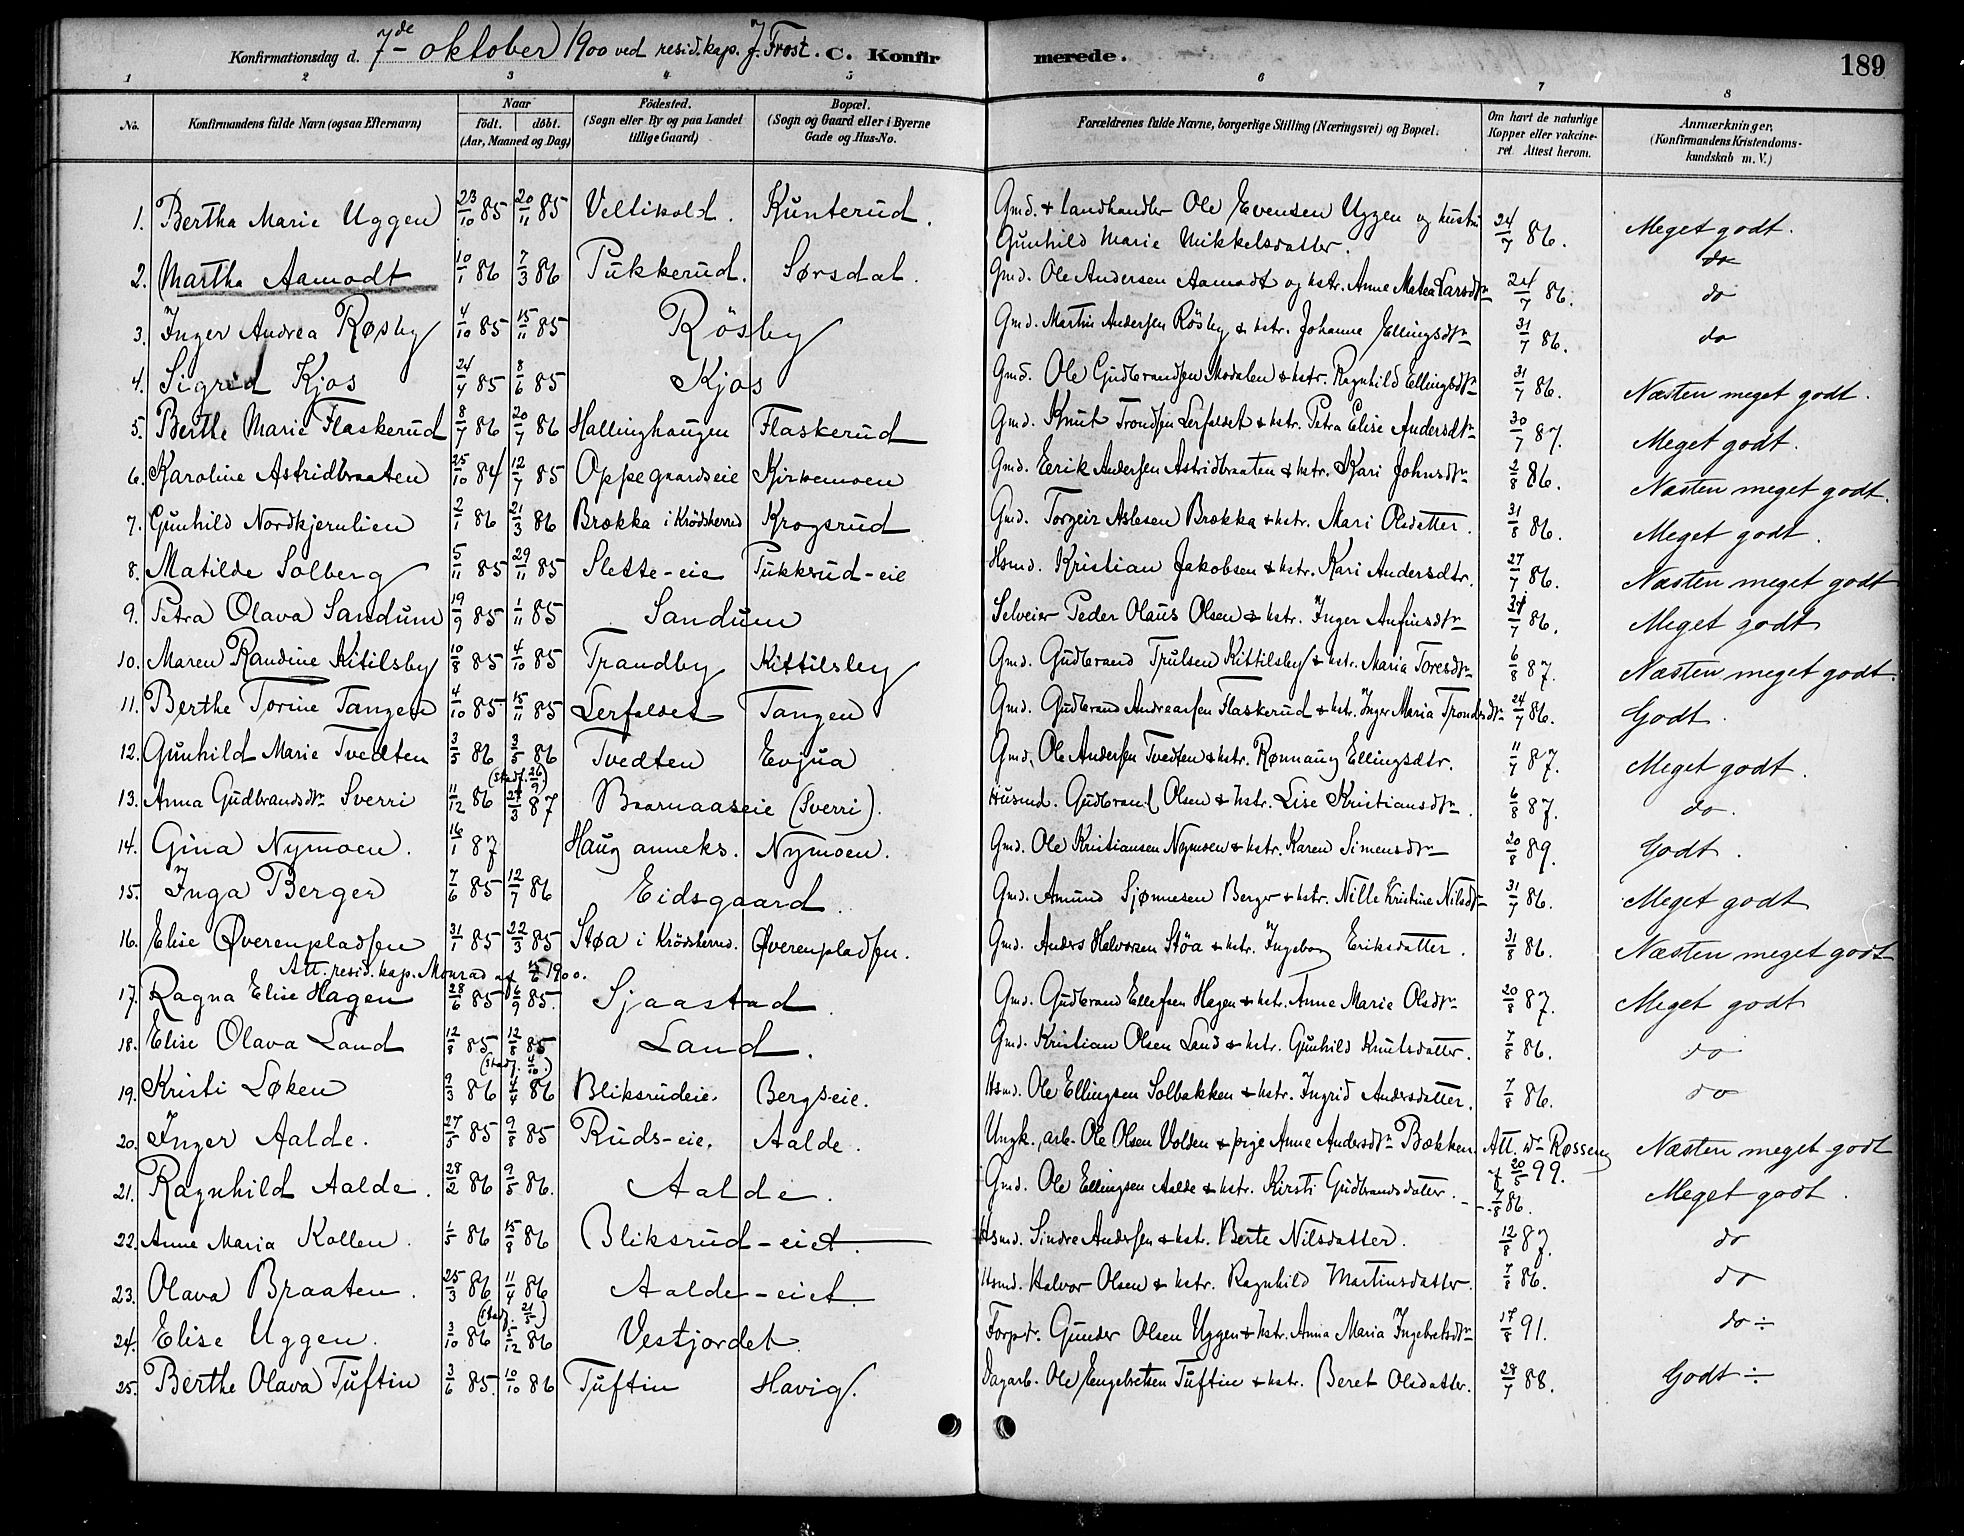 Konfirmationsdag d. 7de oktober 1900 ved resid. kap. J. Frost. C. Konfirmerede. 189
1 2 3 4 5 6 7 8
No. Konfirmandens fulde Navn (ogsaa Efternavn) Naar født. døbt. (Aar, Maaned og Dag) Fødested. (Sogn eller By og paa Landet tillige Gaard) Bopæl. (Sogn og Gaard eller i Byerne Gade og Hus-No. Forældrenes fulde Navne, borgerlige Stilling (Næringsvei) og Bopæl. Om havt de naturlige Kopper eller vakcineret. Attest herom. Anmærkninger. (Konfirmandens Kristendomskundskab m. V.)
1. Bertha Marie Uggen 23/10 85 20/11 85 Veltikold. Kunterud. Gmd. + landhandler Ole Evensen Uggen og hustru Gunhild Marie Mikkelsdatter. 24/7 86. Meget godt.
do
2. Martha Aamodt 10/1 86 7/3 86 Pukkerud. Sørsdal. Gmd. Ole Andersen Aamodt og hstr. Anne Matea Larsdtr 24/7 86. do
3. Inger Andrea Røsby 4/10 85 15/11 85 Rösby Gmd. Martin Andersen Rösby & hstr. Johanne Ellingsdtr 31/7 86. do
4. Sigrid Kjos 24/4 85 8/6 85 Kjos Gmd. Ole Gudbrandsen Modalen & hstr. Ragnhild Ellingsdtr 31/7 86. Næsten meget godt.
5. Berthe Marie Flaskerud 8/7 86 20/7 86 Hallinghaugen Flaskerud Gmd. Knut Trondsen Lerfaldet & hstr. Petra Elise Andersdtr 30/7 87. Meget godt.
6. Karoline Astridbraaten 25/10 84 12/7 85 Oppegaardseie Kirkemoen Gmd. Eerik Andersen Astridbraaten & hstr. Kari Johnsdtr 2/8 86. Næsten meget godt.
7. Gunhild Nordkjernlien 2/1 86 21/3 86 Brækka i Krödsherred Krogsrud Gmd. Torgeir Aslesen Brækka & hstr. Mari Olsdatter. 31/8 86. Meget godt.
8. Matilde Solberg 5/11 85 29/11 85 Slette-eie Pukkrud-eie Hsmd. Kristian Jakobsen & hstr. Kari Andersdtr. 27/7 86. Næsten meget godt
9. Petra Olava Sandum 19/9 85 1/11 85 Sandum Selveier Peder Olaus Olsen & hstr. Inger Anfinsdtr 31/7 86. Meget godt
10. Maren Randine Kitilsby 10/8 85 4/10 85 Trandby Kittilsby Gmd. Gudbrand Trulsen Kittilsby & hstr. Maria Toresdtr 6/8 87. Næsten meget godt.
11. Berthe Torine Tangen 4/10 85 15/11 85 Lerfaldet Tangen Gmd. Gudbrand Andreassen Flaskerud & hstr. Inger Maria Trondsdtr 24/7 86. Godt.
12. Gunhild Marie Tvedten 3/5 86 3/5 86 (stadf. 26/9) Tvedten Evjua Gmd. Ole Andersen Tvedten & hstr. Rønnaug Ellingsdtr. 11/7 87. Meget godt.
13. Anna Gudbrandsdtr Sverri 11/12 86 27/3 87 Baarnaaseie (Sverri). Husmd. Gudbrand Olsen & hstr. Lise Kristiansdtr. 6/8 87. do.
14. Gina Nymoen. 16/1 87 Haug anneks. Nymoen. Gmd. Ole Kristiansen Nymoen & hstr. Karen Simensdtr 20/8 89. Godt.
15. Inga Berger 7/6 85 12/7 86 Eidsgaard. Gmd. Amund Sjønnesen Berger & hstr. Nille Kristine Nilsdtr 31/7 86. Meget godt
16. Elise Øverenpladsen 31/1 85 22/3 85 Støa i Krödsherred. Øverenpladsen. Gmd. Anders Halvorsen Stöa & hstr. Ingeborg Eriksdatter. 31/8 86. Næsten meget godt
Att. resid. kap. Monrad af 15/6 1900.
17. Ragna Elise Hagen 28/6 85 6/9 85. Sjaastad. Gmd. Gudbrand Ellefsen Hagen & hstr. Anne Marie Olsdtr 20/8 87. Meget godt
18. Elise Olava Land 12/8 85 12/8 85 (stadf. 4/10.) Land. Gmd. Kristian Olsen Land & hstr. Gunhild Knutsdatter. 7/8 86. do
19. Kristi Løken 9/3 86 4/4 86 Bliksrudeie. Bergseie. Hsmd. Ole Ellingsen Solbakken & hstr. Ingrid Andersdatter. 7/8 86. do
20. Inger Aalde. 27/5 85 9/8 85 Ruds-eie. Aalde. Ungk., arb. Ole Olsen Volden & pige Anne Andersdtr Bækken. Att. Dr Røssen af 20/5 99. Næsten meget godt
21. Ragnhild Aalde. 28/2 86 9/5 86. Aalde. Gmd. Ole Ellingsen Aalde & hstr. Kirsti Gudbrandsdatter. 7/8 86. Meget godt.
22. Anne Maria Kollen. 1/5 86 15/8 86 Bliksrud-eiet. Hsmd. Sindre Andersen & hstr. Berte Nilsdatter. 12/8 87. do
23. Olava Braaten. 25/3 86 11/4 86 (stadf. 21/5) Aalde-eiet. Hsmd. Halvor Olsen & hstr. Ragnhild Martinsdatter. 7/8 86. do
24. Elise Uggen. 3/10 86 5/12 86 Vestjordet. Forpdr. Gunder Olsen Uggen & hstr. Anna Maria Ingebretsdtr 17/8 91. do ÷
25. Berthe Olava Tuftin 3/6 85. 10/10 86 Tuftin Havig. Dagarb. Ole Engebretsen Tuftin & hstr. Beret Olsdatter. 28/7 88. Godt ÷